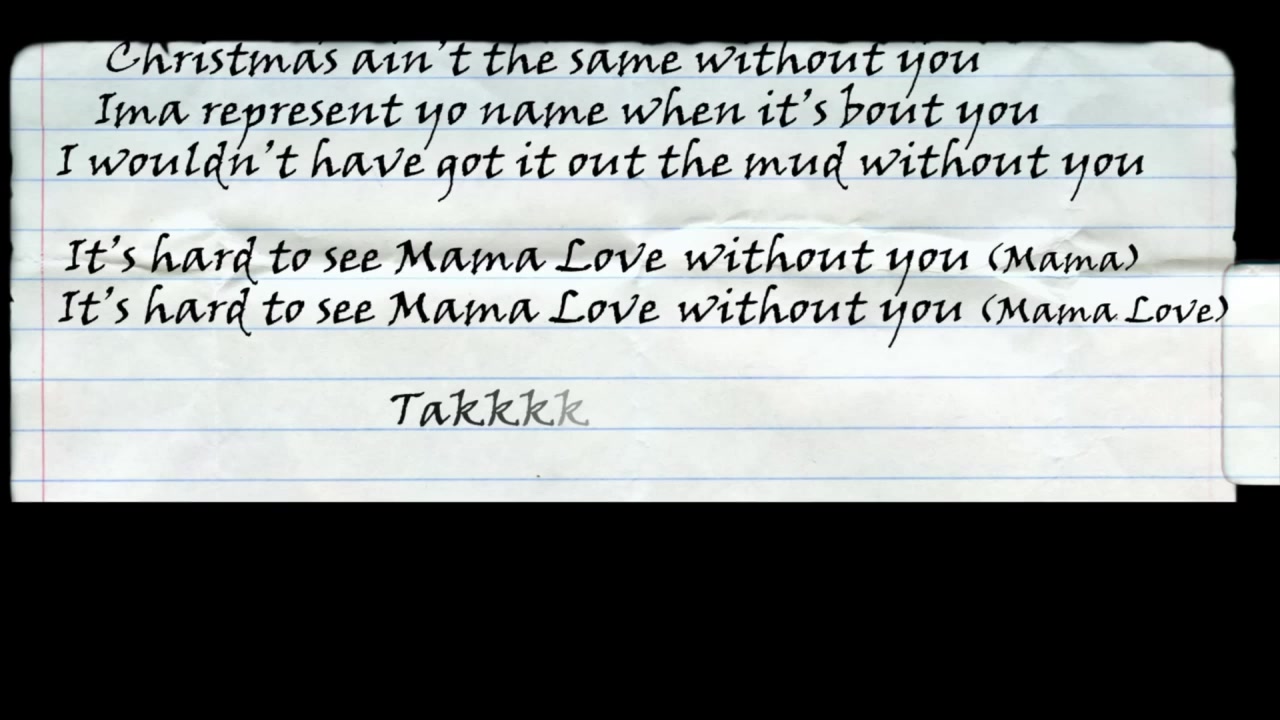 Christmas ain't the same without you
Ima represent yo name when it's bout you
I wouldn't have got it out the mud without you
It's hard to see Mama Love without you (Mama)
It's hard to see Mama Love without you (Mama Love)
Takkkk